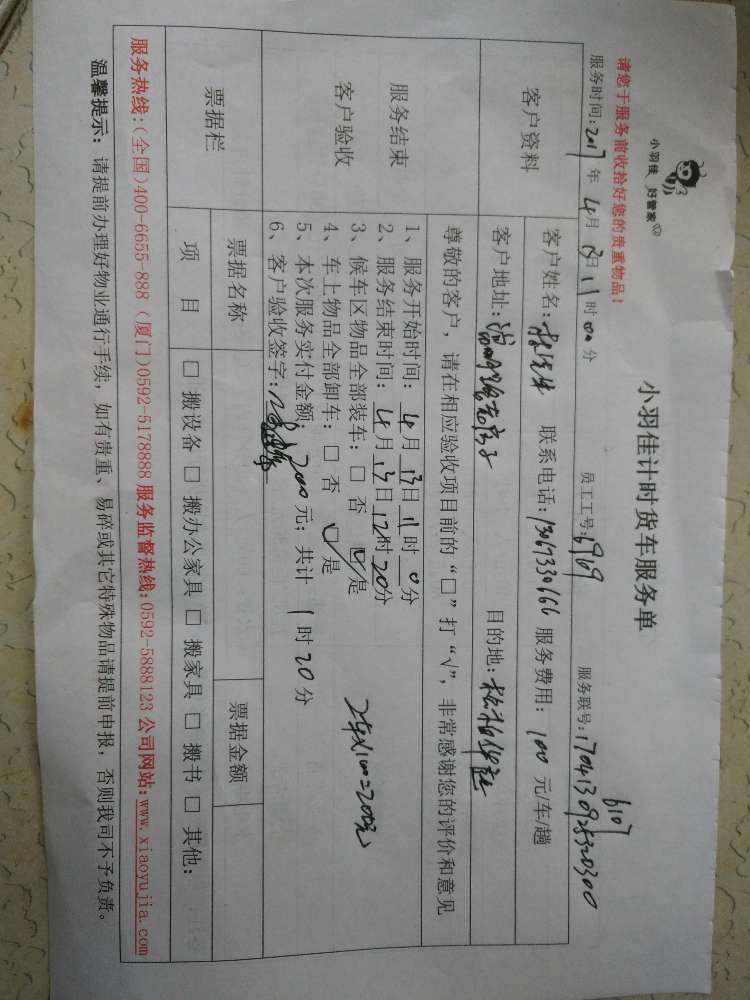 小羽佳 好管家
小羽佳计时货车服务单
请您于服务前收拾好您的贵重物品！
服务时间：2017 年 4 月 13 日 11 时 00 分 员工工号：6969 服务联号：1704130925320300
6107
客户资料
客户姓名： 联系电话：13067330666 服务费用：100 元/车/趟
客户地址： 目的地：
服务结束
客户验收
尊敬的客户，请在相应验收项目前的“□”打“√”，非常感谢您的评价和意见
1、服务开始时间：4 月 13 日 11 时 0 分
2、服务结束时间：4 月 13 日 12 时 20 分
3、候车区物品全部装车：□ 否 ☑ 是
4、车上物品全部卸车：□ 否 ☑ 是
5、本次服务实付金额：200 元；共计 1 时 20 分
6、客户验收签字：
2车×100=200元
票据栏
票据名称 票据金额
项 目 □ 搬设备 □ 搬办公家具 □ 搬家具 □ 搬书 □ 其他：
服务热线：（全国）400-6655-888（厦门）0592-5178888 服务监督热线：0592-5888123 公司网站：www.xiaoyujia.com
温馨提示：请提前办理好物业通行手续，如有贵重、易碎或其它特殊物品请提前申报，否则我司不予负责。